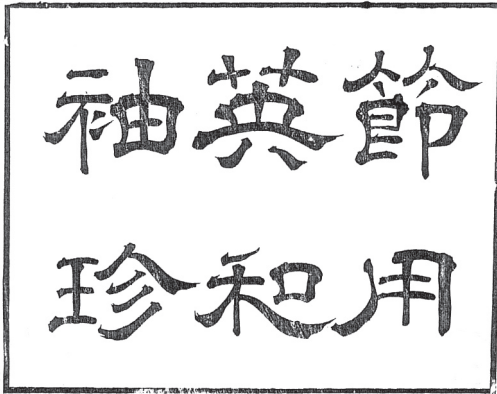 節用
英和
袖珍